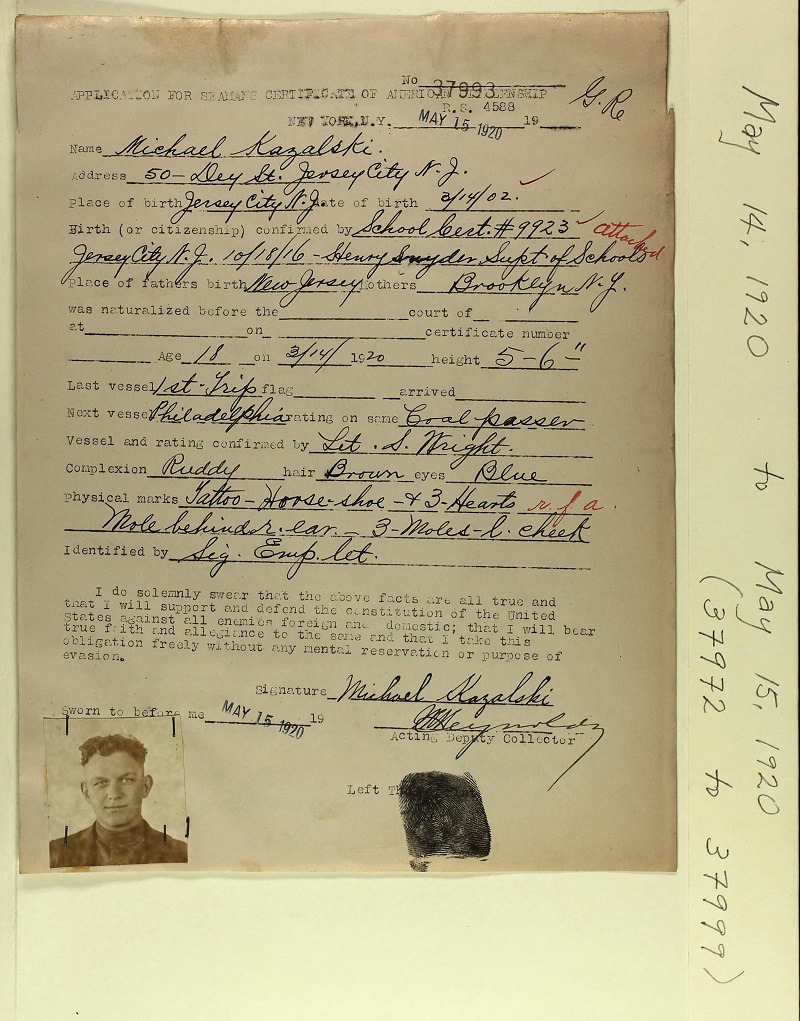 No 37993
APPLICATION FOR SEAMANS CERTIFICATE OF AMERICAN CITIZENSHIP
G. R
R.S. 4588
NEW YORK, N.Y. MAY 15 1920 19
Name Michael Kazalski.
Address 50 - Dey St. Jersey City N. J.
Place of birth Jersey City N. J. Date of birth 3/14/02.
Birth (or citizenship) confirmed by School Cert. # 9923 attached
Jersey City N. J. 10/18/16 - Henry Snyder Supt of Schools
Place of fathers birth New Jersey Mothers Brooklyn N. Y.
was naturalized before the court of
at on certificate number
Age 18 on 3/14/ 1920 height 5-6-"
Last vessel 1st-Trip flag arrived
Next vessel Philadelphia rating on same Coal passer
Vessel and rating confirmed by Let. S. Wright.
Complexion Ruddy hair Brown eyes Blue
Physical marks Tattoo - Horse-shoe - & 3-Hearts r. f. a.
Mole behind r. ear - 3-Moles-l. cheek
Identified by Sig. Emp. let.
I do solemnly swear that the above facts are all true and
that I will support and defend the constitution of the United
States against all enemies foreign and domestic; that I will bear
true faith and allegiance to the same and that I take this
obligation freely without any mental reservation or purpose of
evasion.
Signature Michael Kazalski
Sworn to before me MAY 15 1920 19
Acting Deputy Collector
Left
May 14, 1920 to May 15, 1920
(37972 to 37999)